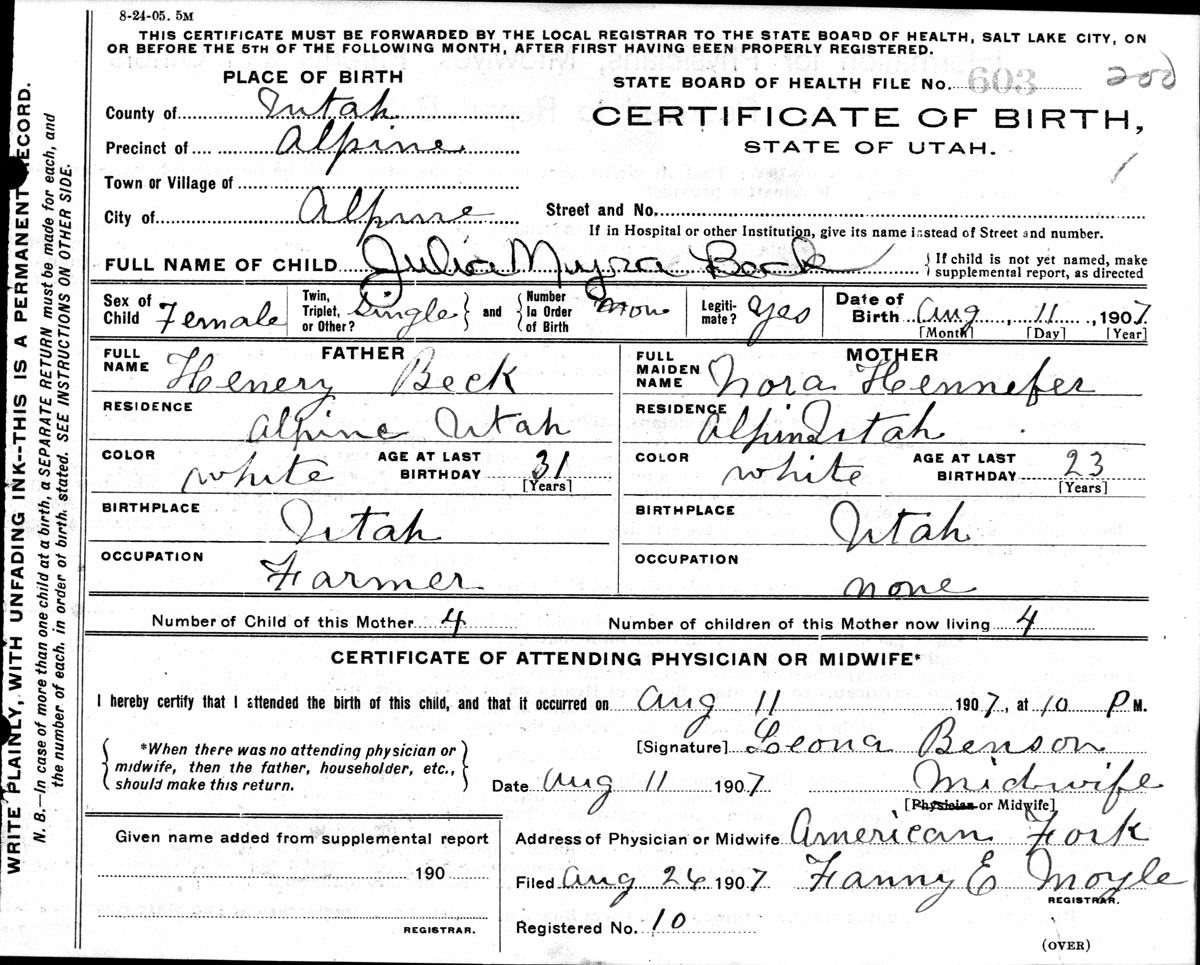 8-24-05. 5M
THIS CERTIFICATE MUST BE FORWARDED BY THE LOCAL REGISTRAR TO THE STATE BOARD OF HEALTH, SALT LAKE CITY, ON
OR BEFORE THE 5TH OF THE FOLLOWING MONTH, AFTER FIRST HAVING BEEN PROPERLY REGISTERED.
PLACE OF BIRTH
STATE BOARD OF HEALTH FILE No. 603 200
County of Utah
CERTIFICATE OF BIRTH,
Precinct of Alpine
STATE OF UTAH.
Town or Village of
City of Alpine
Street and No.
If in Hospital or other Institution, give its name instead of Street and number.
FULL NAME OF CHILD Julia Myra Beck { If child is not yet named, make supplemental report, as directed
Sex of Child Female
Twin, Triplet, or Other? Single } and { Number In Order of Birth
Legitimate? Yes
Date of Birth Aug, 11, 1907
[Month] [Day] [Year]
FATHER
FULL NAME Henery Beck
RESIDENCE Alpine Utah
COLOR white
AGE AT LAST BIRTHDAY 31
[Years]
BIRTHPLACE Utah
OCCUPATION Farmer
MOTHER
FULL MAIDEN NAME Nora Hennefer
RESIDENCE Alpine Utah
COLOR white
AGE AT LAST BIRTHDAY 23
[Years]
BIRTHPLACE Utah
OCCUPATION none
Number of Child of this Mother 4
Number of children of this Mother now living 4
CERTIFICATE OF ATTENDING PHYSICIAN OR MIDWIFE*
I hereby certify that I attended the birth of this child, and that it occurred on Aug 11 1907, at 10 P M.
{ *When there was no attending physician or
midwife, then the father, householder, etc.,
should make this return. }
[Signature] Leona Benson
Date Aug 11 1907 Midwife
[Physician or Midwife]
Address of Physician or Midwife American Fork
Filed Aug 26 1907 Fanny E Moyle
REGISTRAR.
Registered No. 10
(OVER)
Given name added from supplemental report
190
REGISTRAR.
WRITE PLAINLY, WITH UNFADING INK--THIS IS A PERMANENT RECORD.
N. B.—In case of more than one child at a birth, a SEPARATE RETURN must be made for each, and
the number of each, in order of birth, stated. SEE INSTRUCTIONS ON OTHER SIDE.